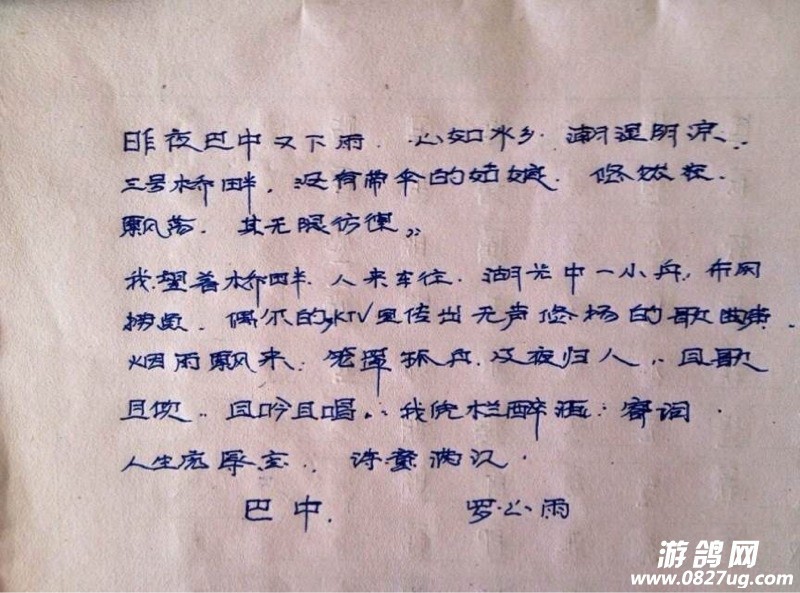 昨夜巴中又下雨. 心如水乡. 潮湿阴凉.
三号桥畔, 没有带伞的姑娘. 修发衣.
飘荡. 其无限彷徨〟
我望着桥畔. 人来车往. 湖光中一小舟, 布网
捞鱼. 偶尔的KTV里传出无声修扬的歌曲.
烟雨飘来. 笼罩孤舟. 反夜归人.. 且歌
且饮.. 且吟且唱.. 我倚栏醉酒. 寄词.
人生. 诗意满江.
巴中. 罗心雨
游鸽网
www.0827ug.com